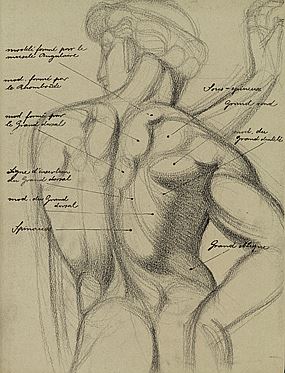 modelé formé par le
muscle Angulaire
mod. formé par
le Rhomboïde
mod. formé par
le Grand dorsal
Ligne d'insertion
du Grand dorsal
mod. du Grand
dorsal
Spinaux
Sous-épineux
Grand rond
mod. du
Grand dentelé
Grand oblique